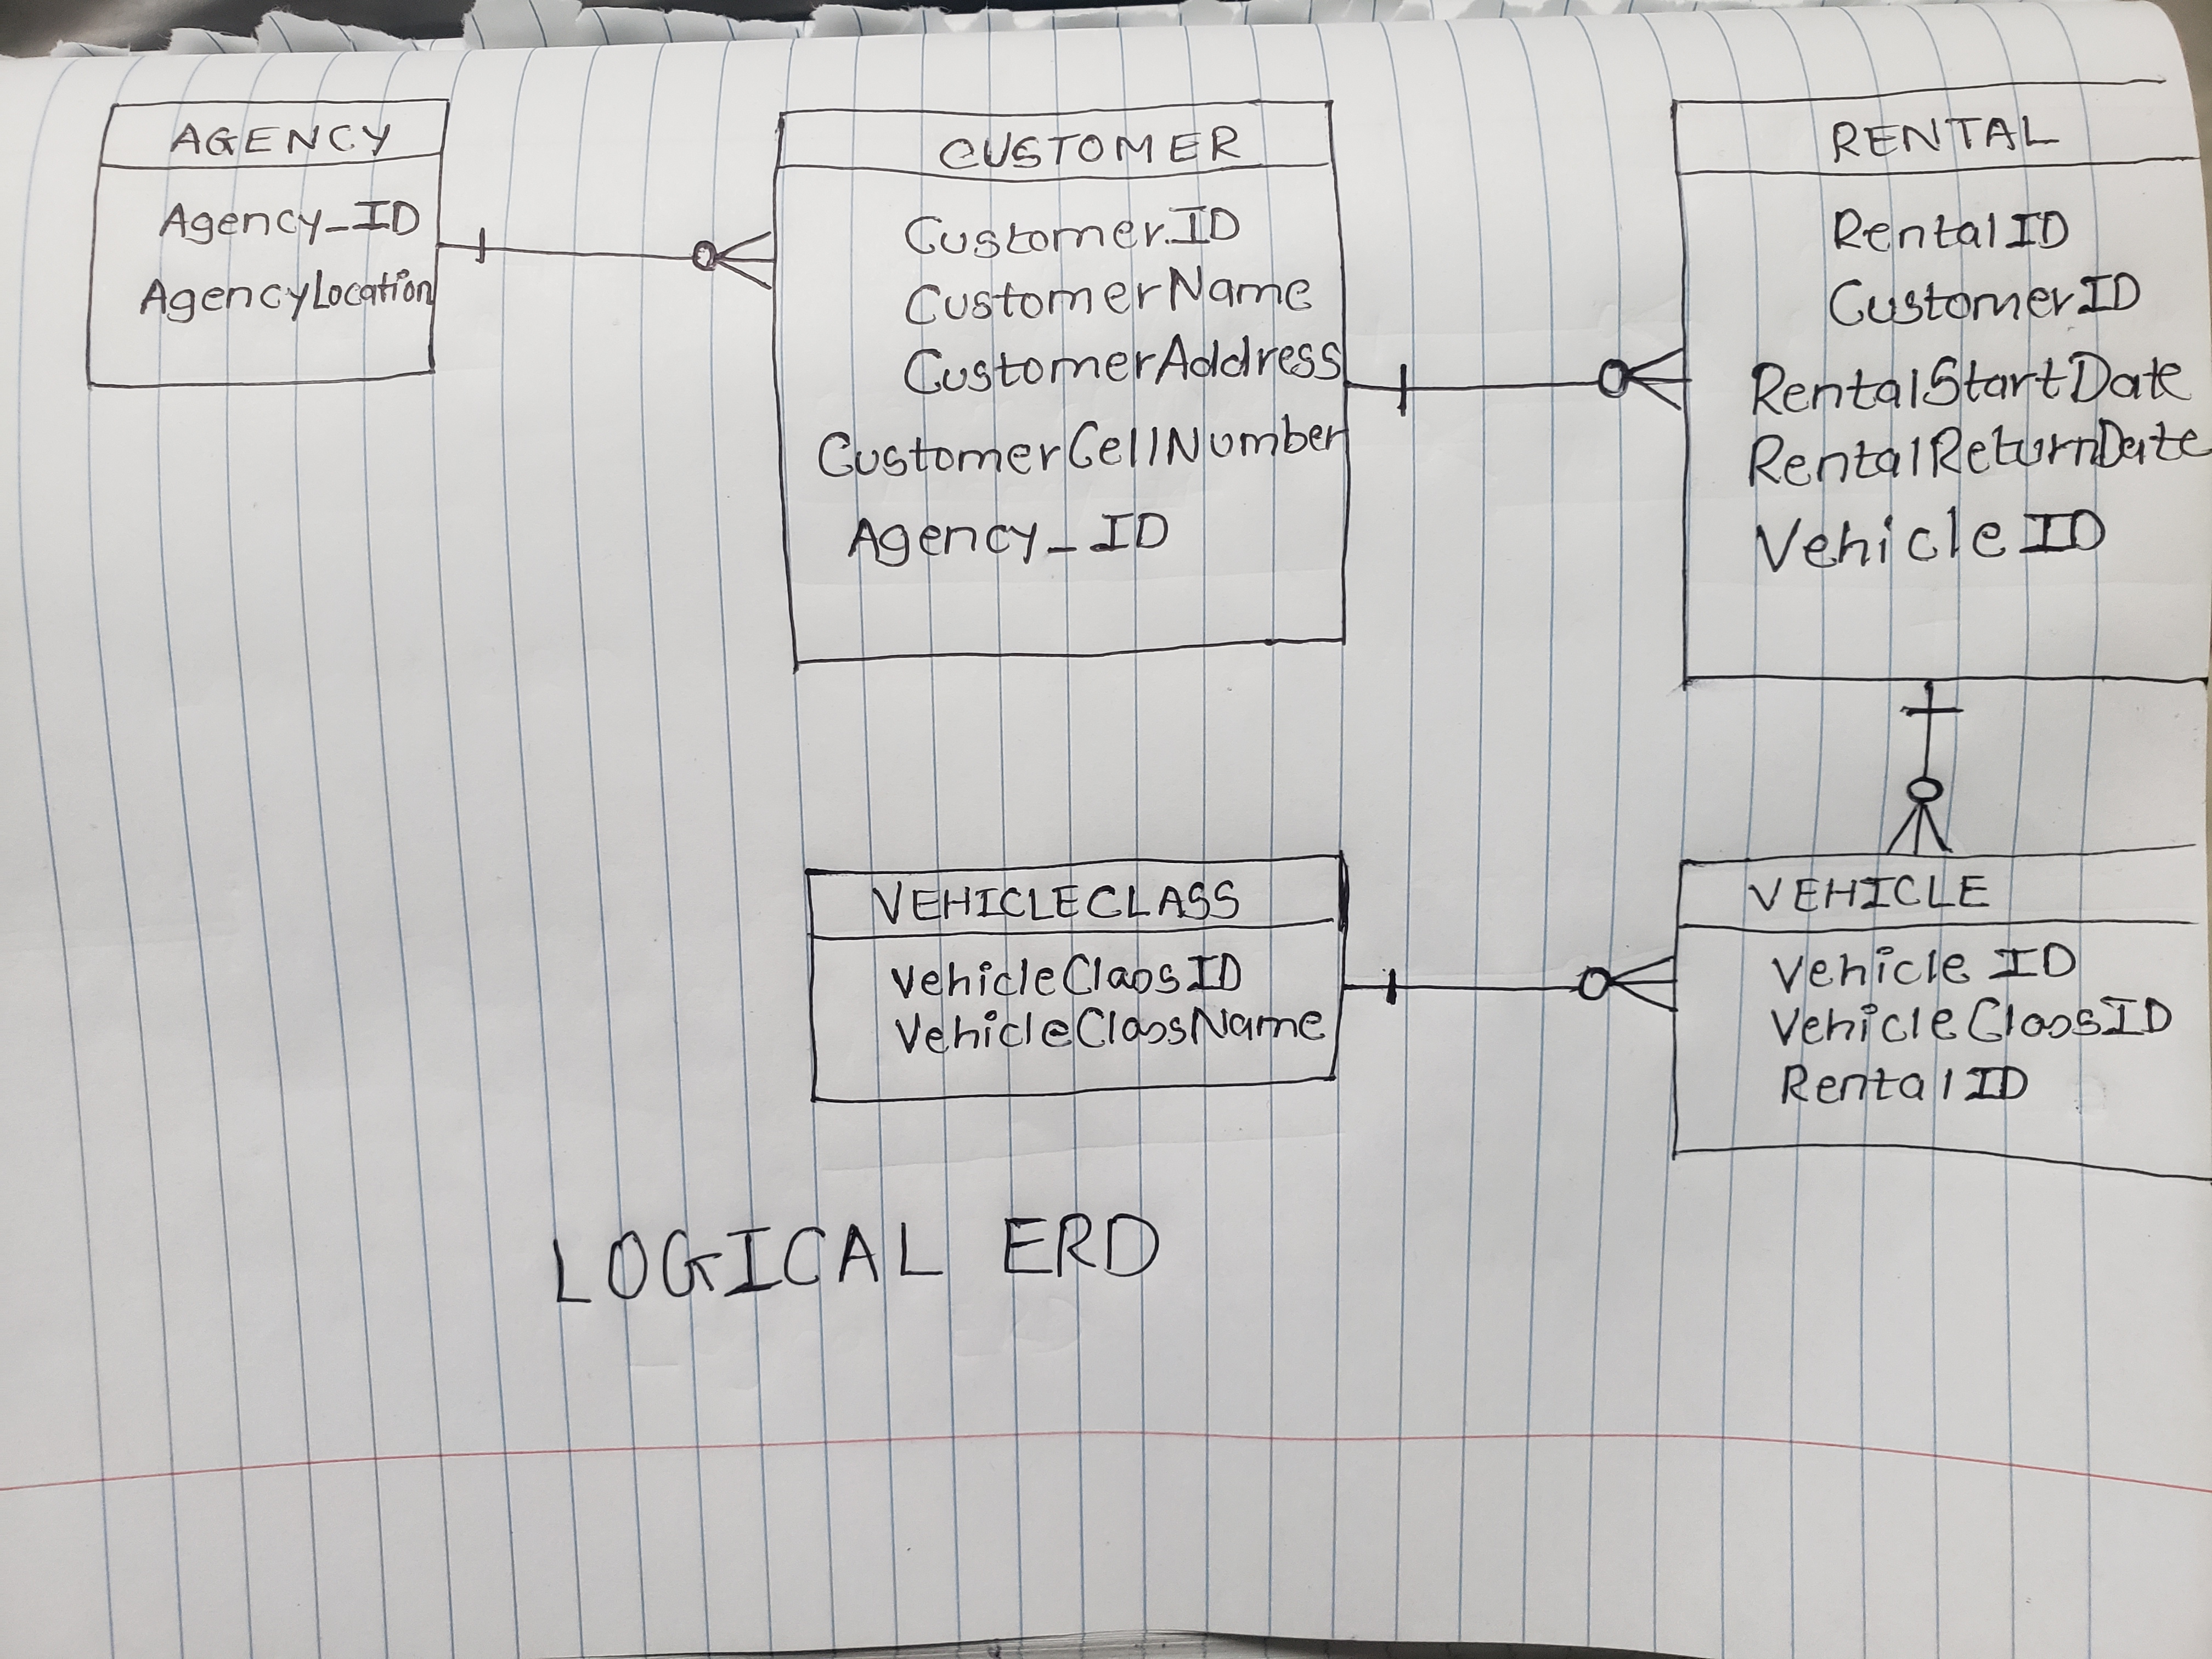 AGENCY
Agency_ID
AgencyLocation
CUSTOMER
CustomerID
CustomerName
CustomerAddress
CustomerCellNumber
Agency_ID
RENTAL
RentalID
CustomerID
RentalStartDate
RentalReturnDate
VehicleID
VEHICLECLASS
VehicleClassID
VehicleClassName
VEHICLE
VehicleID
VehicleClassID
RentalID
LOGICAL ERD